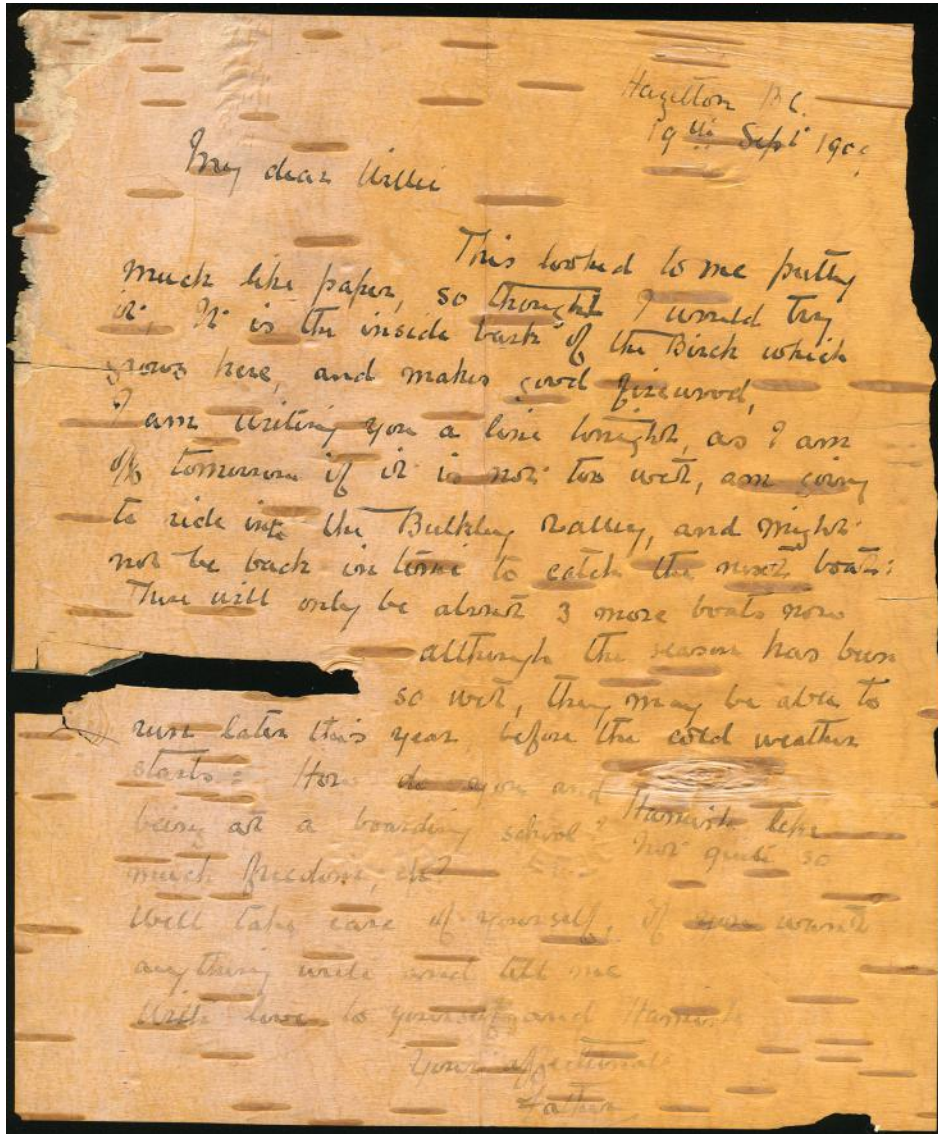 Hazelton B.C.
19th Sept 190
My dear Willie
This looked to me pretty
much like paper, so thought I would try
it, It is the inside bark of the Birch which
grows here, and makes good firewood,
I am writing you a line tonight, as I am
off tomorrow if it is not too wet, am going
to ride into the Bulkley Valley, and might
not be back in time to catch the next boat:
There will only be about 3 more boats now
although the season has been
so wet, they may be able to
run later this year before the cold weather
starts: How do you and Hamish like
being at a boarding school? Not quite so
much freedom, eh?
Well take care of yourself, if you want
anything write and tell me
With love to yourself and Hamish
Your affectionate
Father